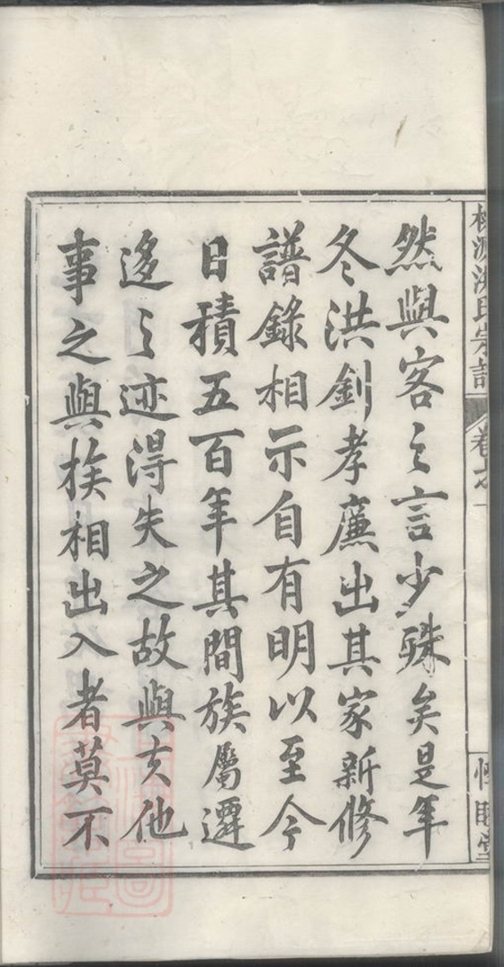 然與客之言少殊矣是年
冬洪釗孝廉出其家新修
譜錄相示自有明以至今
日積五百年其間族屬遷
迻之迹得失之故與夫他
事之與族相出入者莫不
源洪氏宗譜
卷
惇睦堂